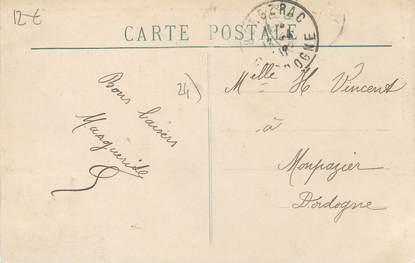 12€
CARTE POSTALE
BERGERAC
DORDOGNE
24)
Bons baisers
Marguerite
Melle H Vincent
à
Monpazier
Dordogne